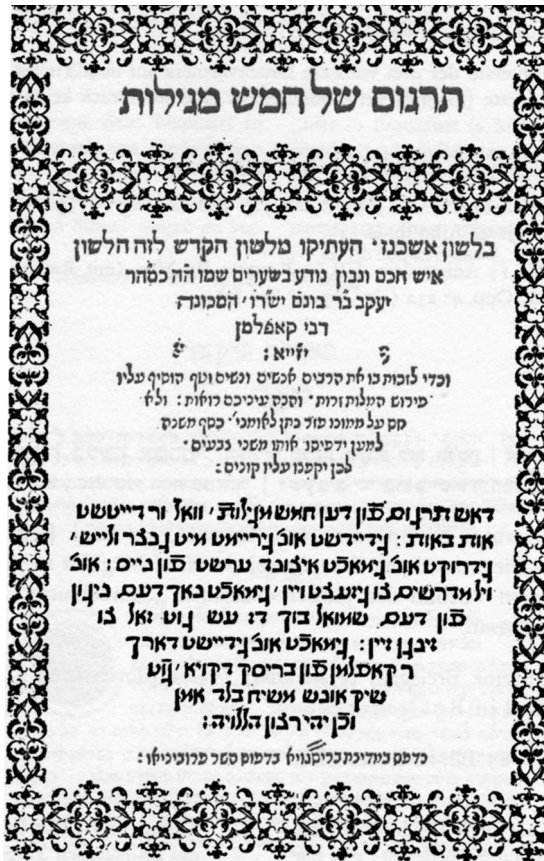 תרגום של חמש מגילות
בלשון אשכנז׳ העתיקו מלשון הקדש לזה הלשון
איש חכם ונבון נודע בשערים שמו הה כמהר
יעקב בר בונם יש״רו ׳ המכונה
רבי קאפלמן
יזייא :
וכדי לזכות בו את הרבים אנשים ונשים וטף הוסיף עליו
פירוש המלות זרות ׳ והנה עיניכם רואות : ולא
חס על ממונו פזר נתן לאומני׳ כסף משנה
למען ידפיסו אותו משני צבעים ׳
לכן יקפצו עליו קונים :
דאש תרגום פון דען חמש מגילות ׳ וואל ור דייטשט
אות באות : גידייטשט אונ׳ גיריימט מיט גנצר ולייש ׳
גידרוקט אונ׳ גימאכט איצונד ערשט פון נייס : אונ׳
ויל מדרשים צו גיזעצט ויין ׳ גימאכט נאך דעם ניגון
פון דעם שמואל בוך ד׳ עש גוט זאל צו
זינגן זיין : גימאכט אונ׳ גידייטשט דארך
ר קאפלמן פון בריסק דקויא ׳ גוט
שיק אונש משיח בלד אמן
וכן יהי רצון הללויה :
נדפס במדינת ברייסגויא בדפוס השר פרוביניאו :